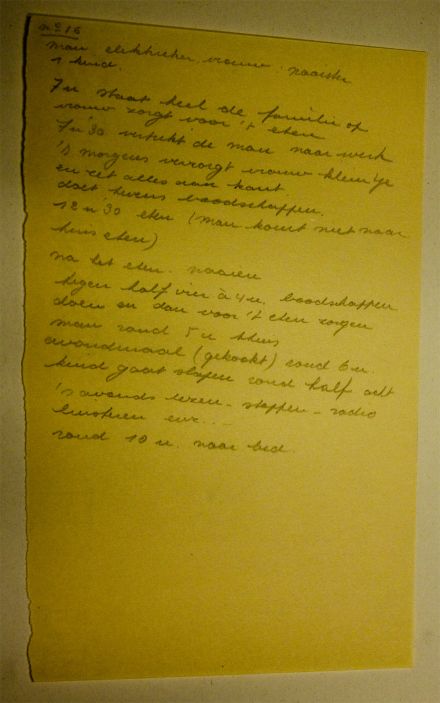 nº 16
man elektrieker, vrouw: naaister
1 kind.
7u staat heel de familie op
vrouw zorgt voor 't eten
7u'30 vertrekt de man naar werk
's morgens verzorgt vrouw kleintje
en zet alles aan kant.
doet tevens boodschappen.
12u'30 eten (man komt niet naar
huis eten)
na het eten - naaien
tegen half vier à 4u. boodschappen
doen en dan voor 't eten zorgen
man rond 5u thuis
avondmaal (gekookt) rond 6u.
kind gaat slapen rond half acht
's avonds lezen - stoppen - radio
luisteren enz...
rond 10u. naar bed.